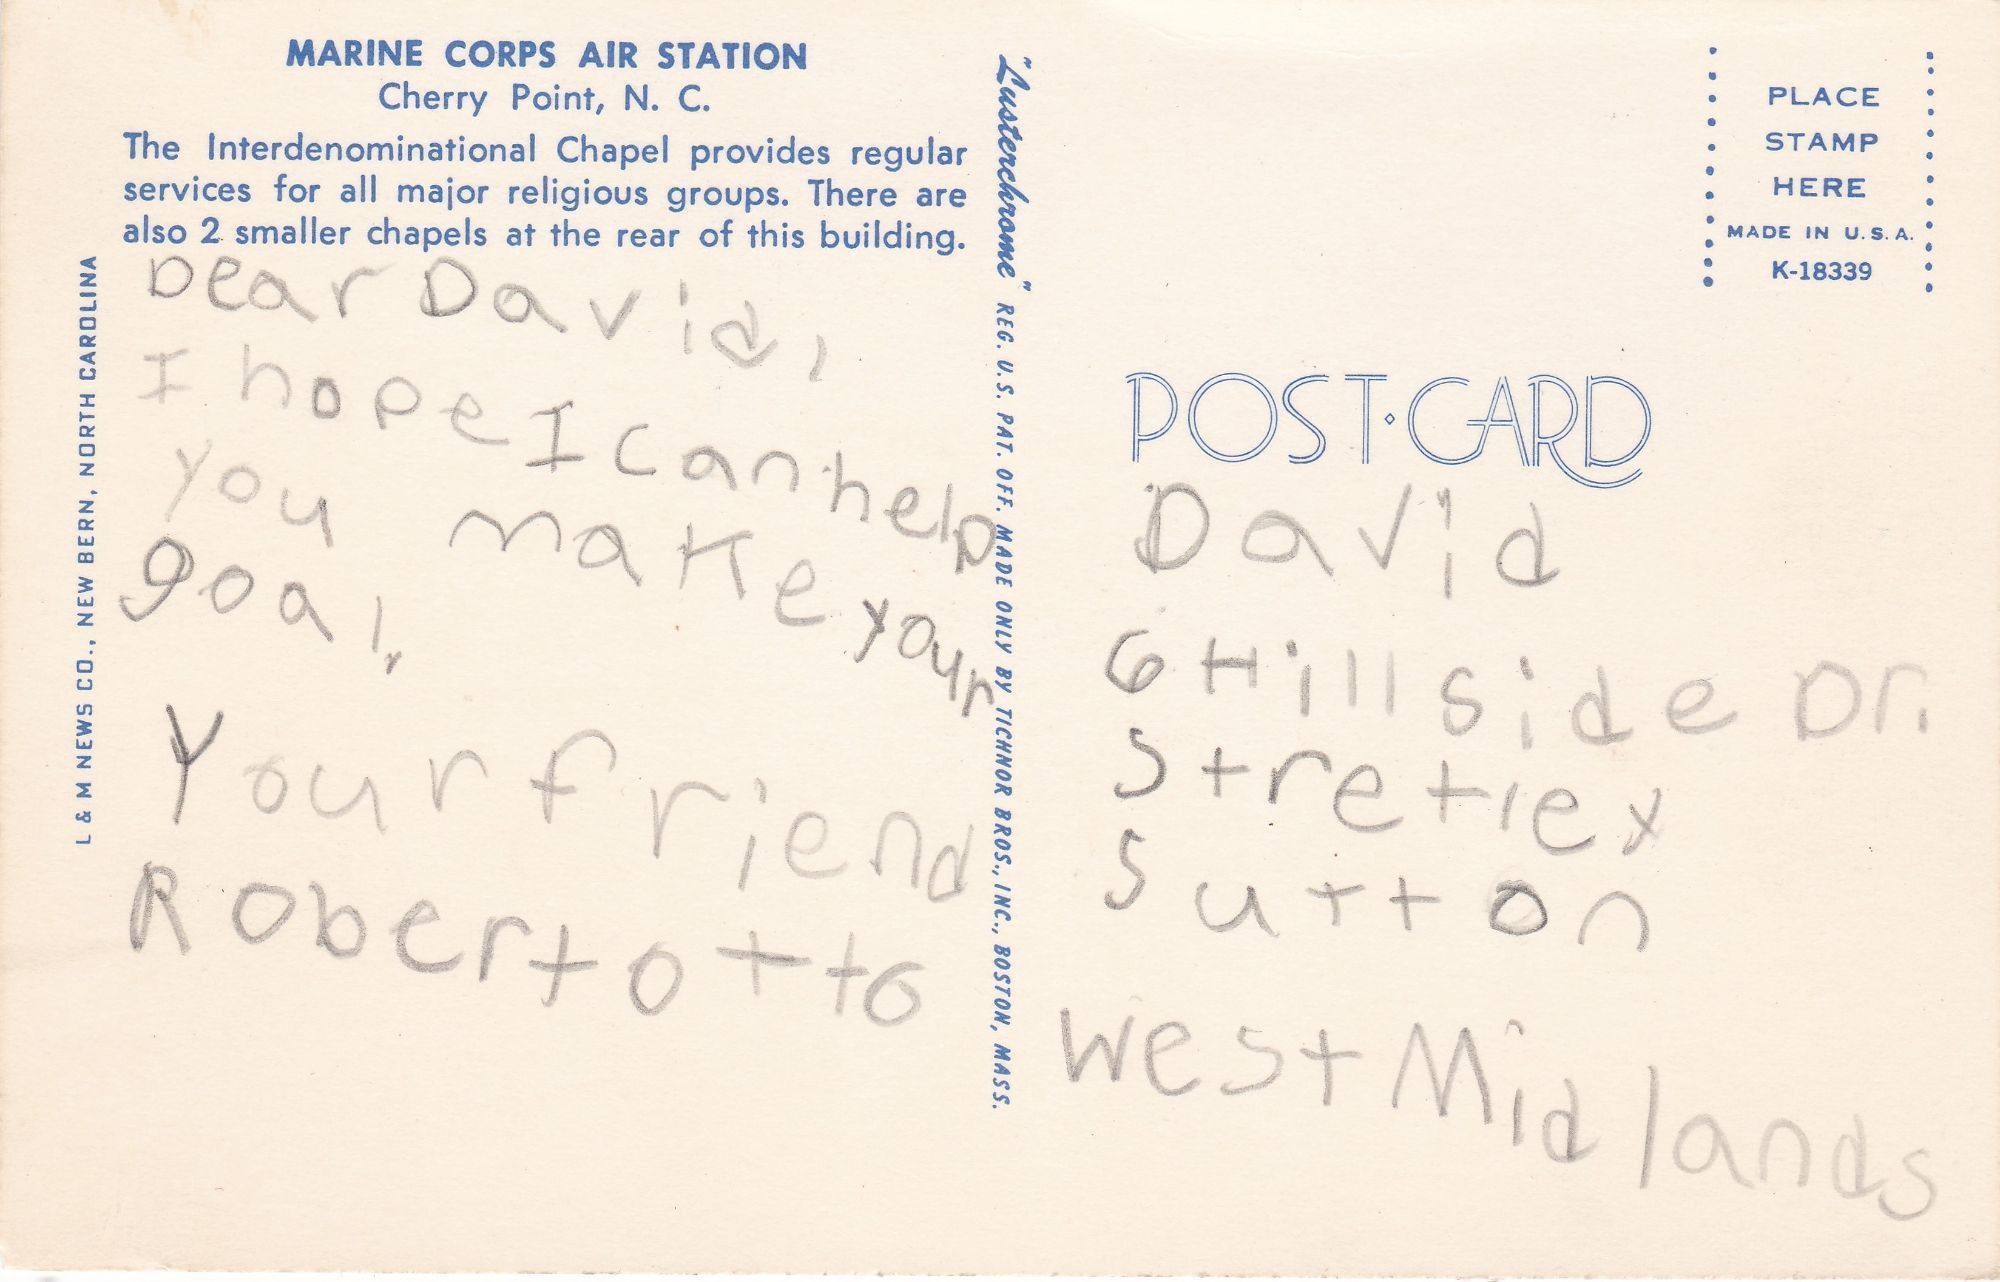 MARINE CORPS AIR STATION
Cherry Point, N. C.
The Interdenominational Chapel provides regular
services for all major religious groups. There are
also 2 smaller chapels at the rear of this building.
Dear David,
I hope I can help
you make your
goal.
Your friend
Robert Otto
L & M NEWS CO., NEW BERN, NORTH CAROLINA
"Lusterchrome" REG. U.S. PAT. OFF. MADE ONLY BY TICHNOR BROS., INC., BOSTON, MASS.
PLACE
STAMP
HERE
MADE IN U.S.A.
K-18339
POST·CARD
David
6 Hillside Dr.
Stretlex
Sutton
West Midlands